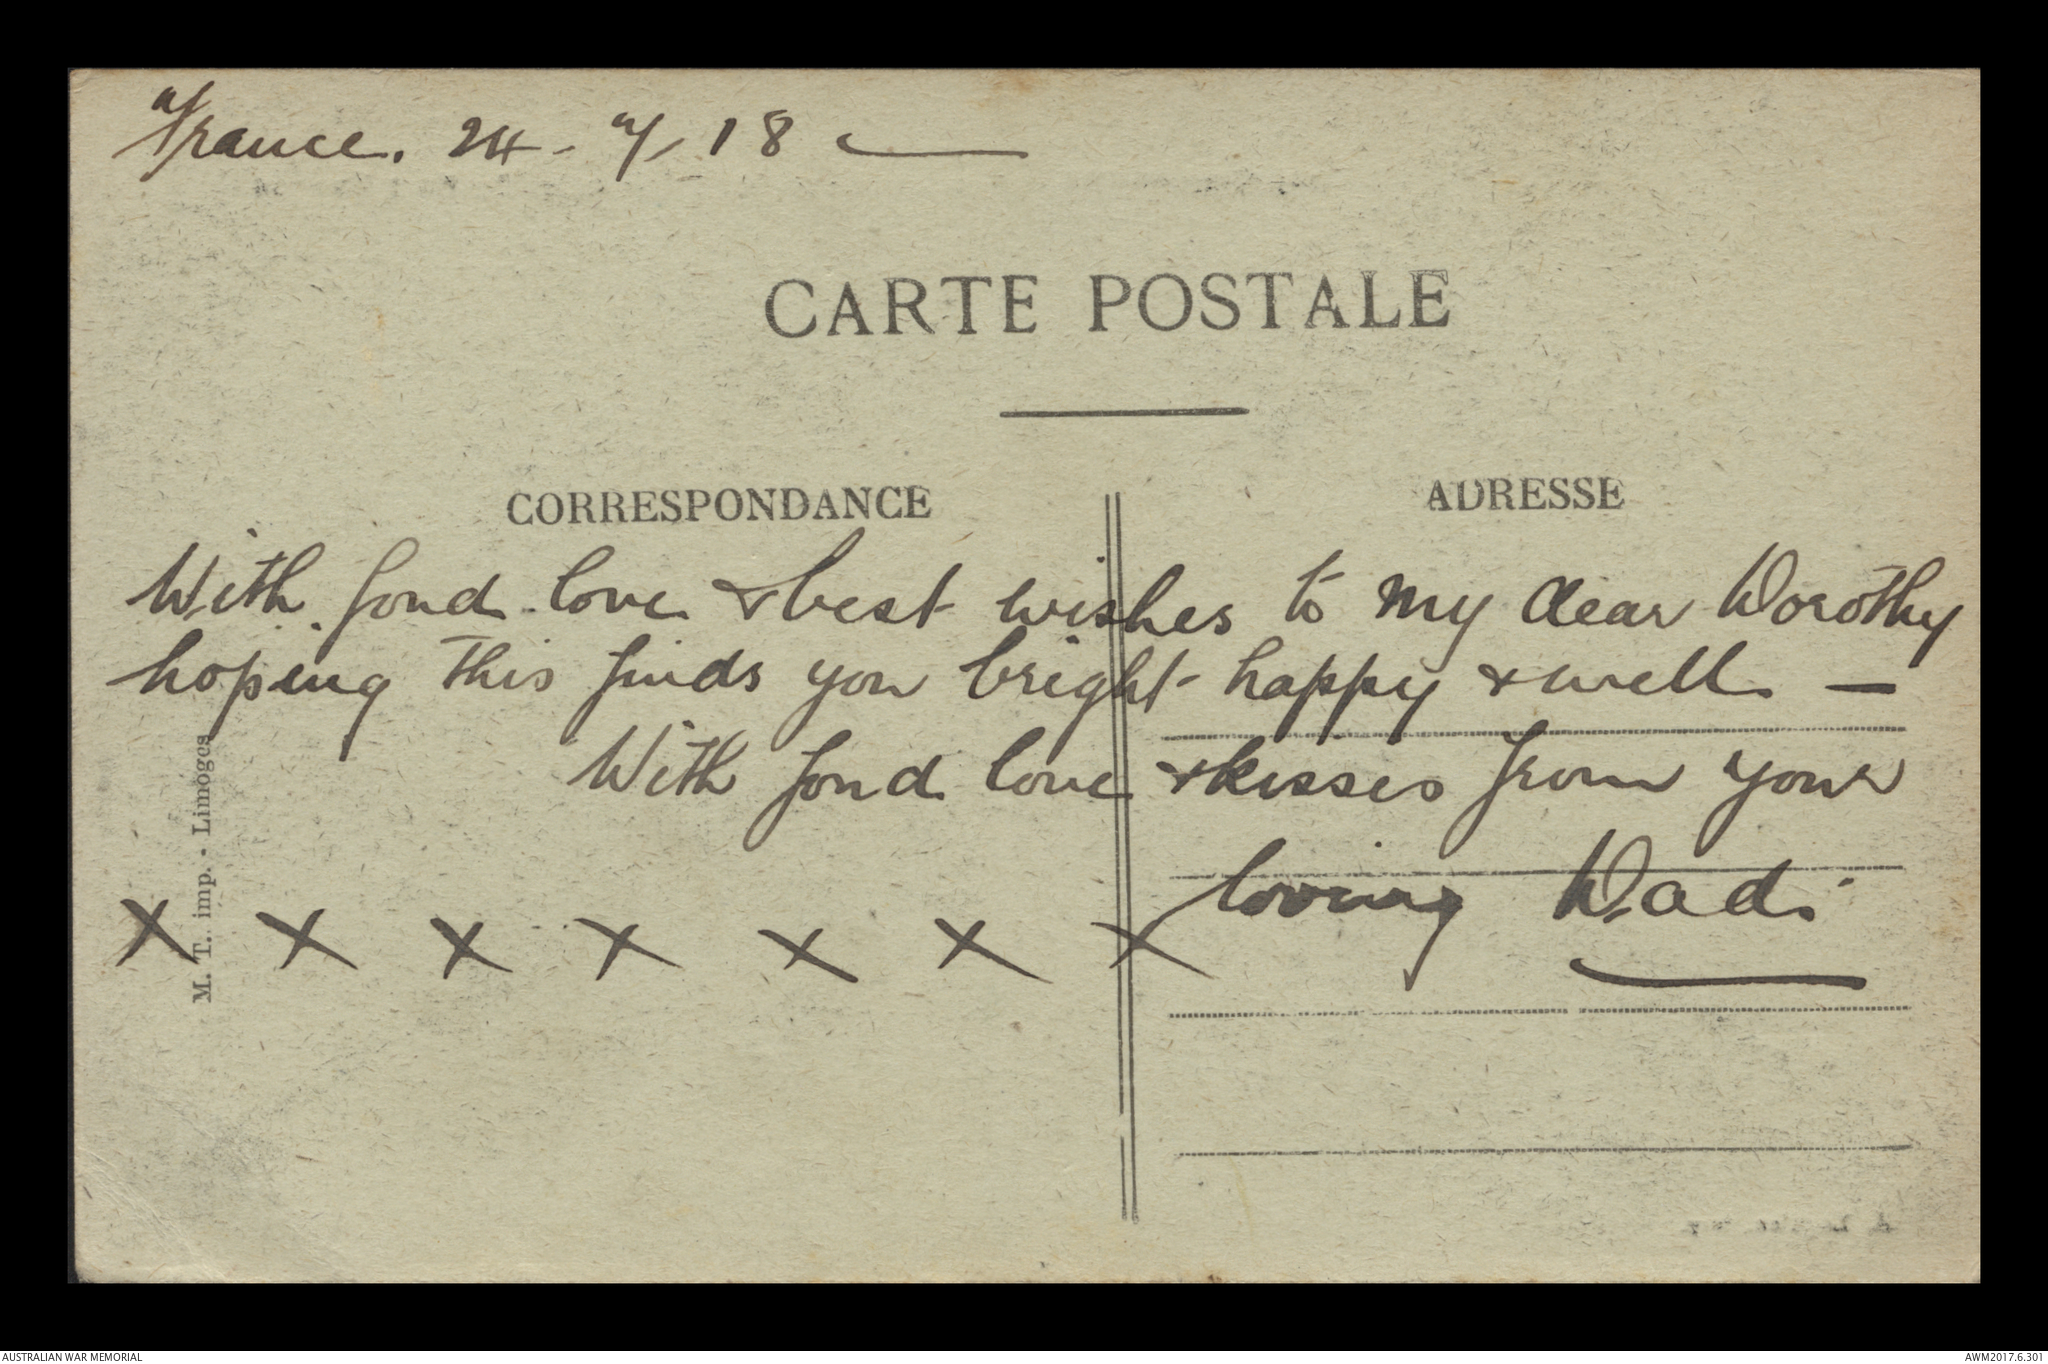 France. 24-7-18
CARTE POSTALE
CORRESPONDANCE
ADRESSE
With fond love & best wishes to my dear Dorothy
hoping this finds you bright happy & well —
With fond love & kisses from your
loving Dad.
X X X X X X X
M. T. imp. - Limoges
AUSTRALIAN WAR MEMORIAL
AWM2017.6.301